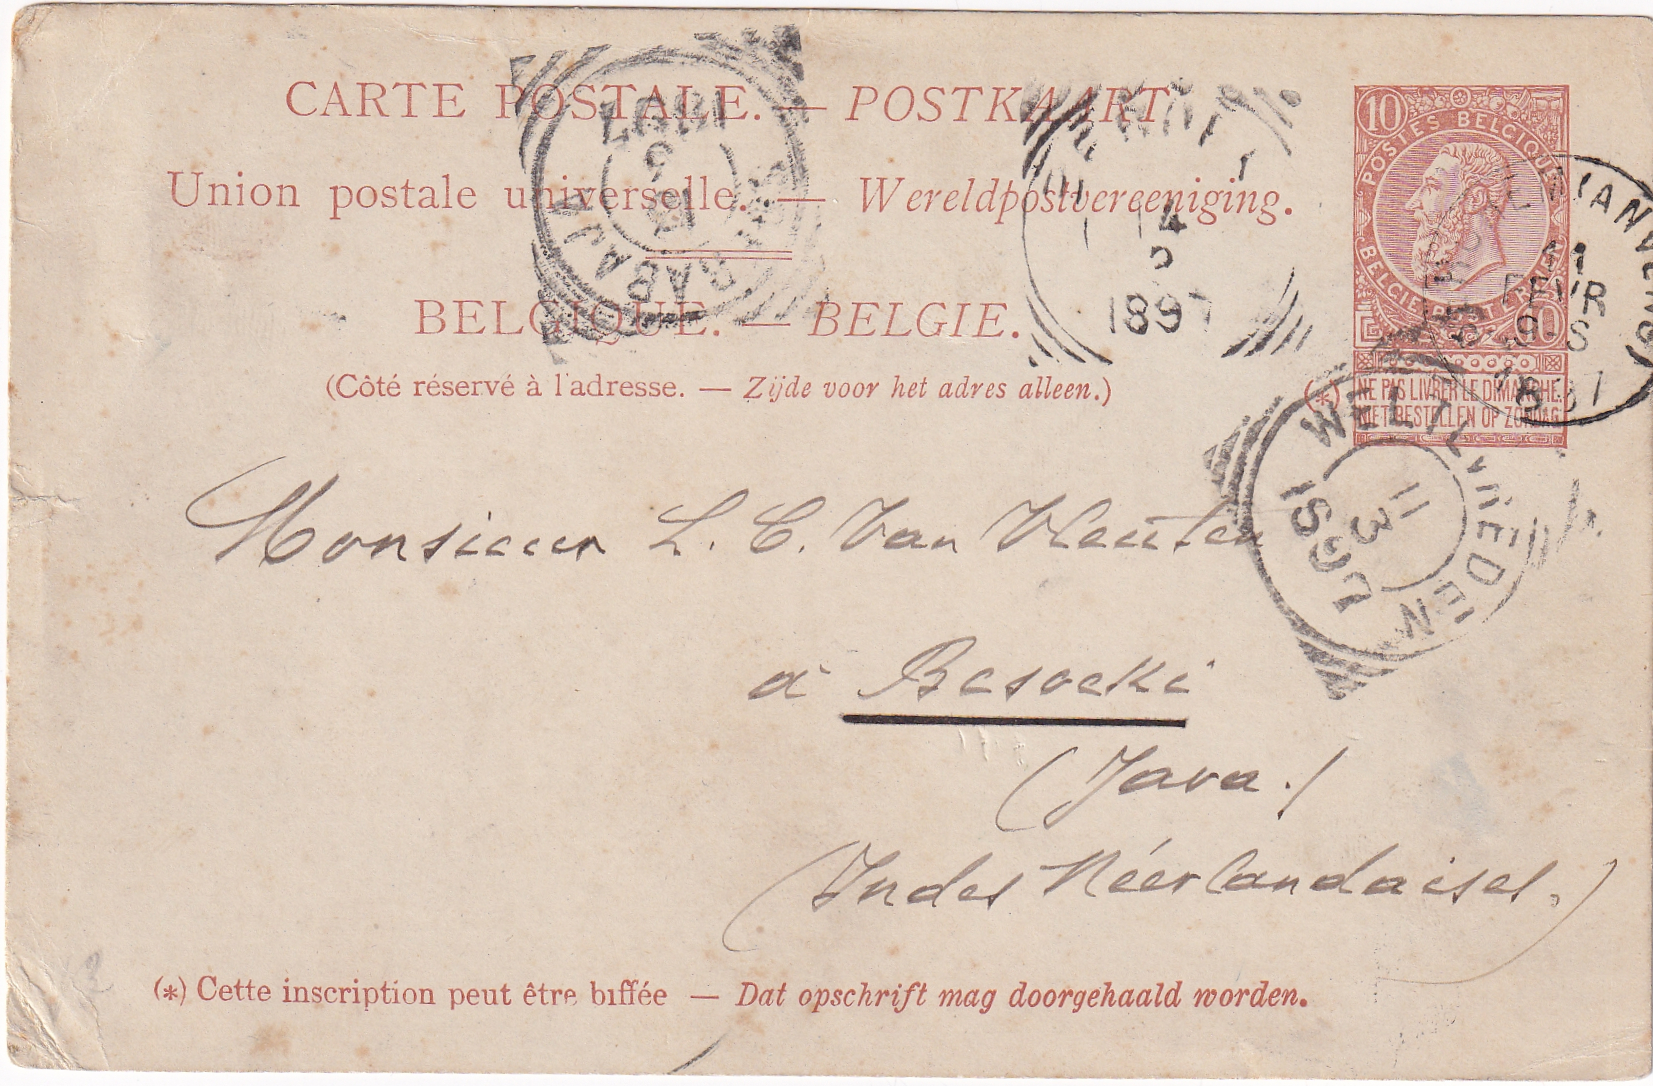 CARTE POSTALE. — POSTKAART
Union postale universelle. — Wereldpostvereeniging.
BELGIQUE. — BELGIE.
(Côté réservé à l'adresse. — Zijde voor het adres alleen.)
10
POSTES BELGIQUE
BELGIE
10
(*)
NE PAS LIVRER LE DIMANCHE.
NIET BESTELLEN OP ZONDAG
(ANVERS)
11
FEVR
9-S
1897
SOERABAJA
1897
4
1897
WELTEVREDEN
11
3
1897
Monsieur L. C. Van Vleuten
à Besoeki
(Java.)
(Indes Néerlandaises.)
(*) Cette inscription peut être biffée — Dat opschrift mag doorgehaald worden.